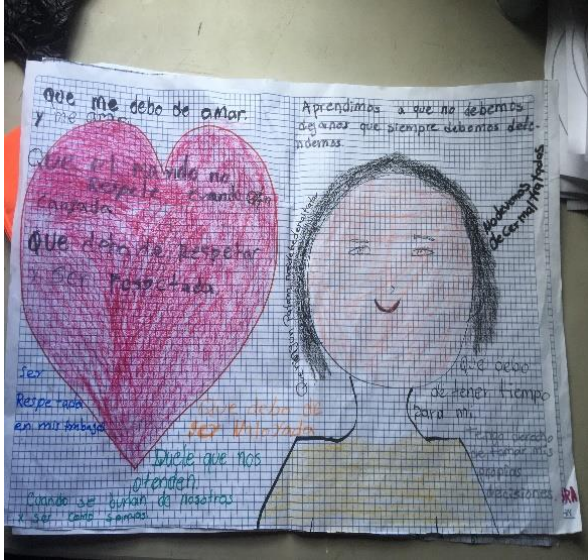 Que me debo de amar.
y me amo
Que el marido no
Respete cuando
cansada
Que debo de Respetar
y Ser Respectada
Ser
Respetada
en mis trabajos
Que debo de
Ser Valorada
Duele que nos
ofenden,
Cuando se burlan de nosotros
y ser como somos.
Aprendimos a que no debemos
dejarnos que siempre debemos defe-
ndernos
No devemos
de cer maltratadas
Que debo
de tener tiempo
para mi.
Tengo derecho
de tomar mis
propias
decisiones.